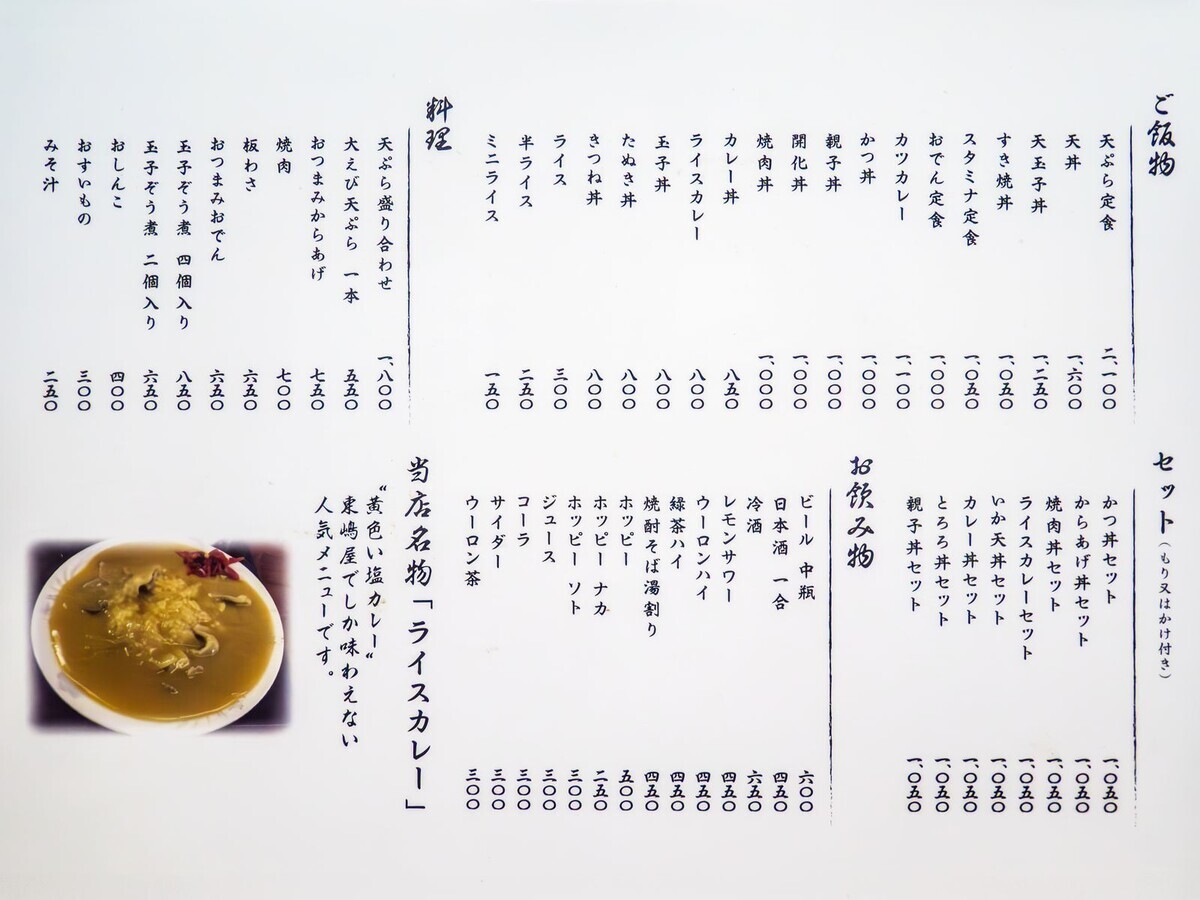 ご飯物
天ぷら定食 二、一〇〇
天丼 一、六〇〇
天玉子丼 一、二五〇
すき焼丼 一、〇五〇
スタミナ定食 一、〇五〇
おでん定食 一、〇〇〇
カツカレー 一、一〇〇
かつ丼 一、〇〇〇
親子丼 一、〇〇〇
開化丼 一、〇〇〇
焼肉丼 一、〇〇〇
カレー丼 八五〇
ライスカレー 八〇〇
玉子丼 八〇〇
たぬき丼 八〇〇
きつね丼 八〇〇
ライス 三〇〇
半ライス 二五〇
ミニライス 一五〇
料理
天ぷら盛り合わせ 一、八〇〇
大えび天ぷら 一本 五五〇
おつまみからあげ 七五〇
焼肉 七〇〇
板わさ 六五〇
おつまみおでん 六五〇
玉子ぞう煮 四個入り 八五〇
玉子ぞう煮 二個入り 六五〇
おしんこ 四〇〇
おすいもの 三〇〇
みそ汁 二五〇
セット（もり又はかけ付き）
かつ丼セット 一、〇五〇
からあげ丼セット 一、〇五〇
焼肉丼セット 一、〇五〇
ライスカレーセット 一、〇五〇
いか天丼セット 一、〇五〇
カレー丼セット 一、〇五〇
とろろ丼セット 一、〇五〇
親子丼セット 一、〇五〇
お飲み物
ビール 中瓶 六〇〇
日本酒 一合 四五〇
冷酒 六五〇
レモンサワー 四五〇
ウーロンハイ 四五〇
緑茶ハイ 四五〇
焼酎そば湯割り 四五〇
ホッピー 五〇〇
ホッピー ナカ 二五〇
ホッピー ソト 三〇〇
ジュース 三〇〇
コーラ 三〇〇
サイダー 三〇〇
ウーロン茶 三〇〇
当店名物「ライスカレー」
“黄色い塩カレー“
東嶋屋でしか味わえない
人気メニューです。